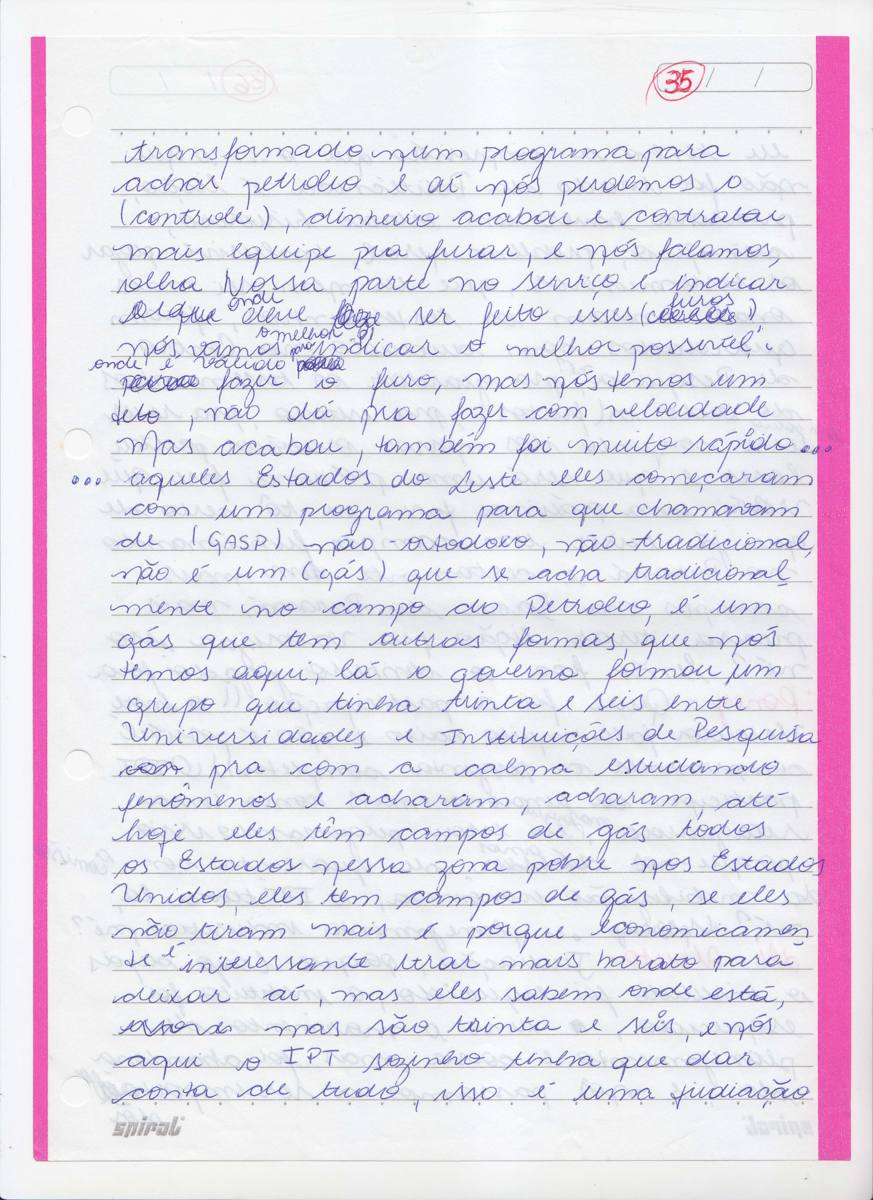 35 / /
transformado num programa para
achar petroleo e aí nós perdemos o
(controle), dinheiro acabou e contratar
mais equipe pra furar, e nós falamos,
olha Nossa parte no serviço é indicar
onde furos
deve ser feito esses ( )
o melhor
nós vamos para indicar o melhor possivel, é
onde é válido
fazer o furo, mas nós temos um
teto, não dá pra fazer com velocidade
Mas acabou, também foi muito rápido...
... aqueles Estados do Leste eles começaram
com um programa para que chamavam
de (GASP) não-ortodoxo, não-tradicional,
não é um (gás) que se acha tradicional-
mente no campo do Petroleo, é um
gás que tem outras formas, que nós
temos aqui, lá o governo formou um
grupo que tinha trinta e seis entre
Universidades e Instituições de Pesquisa
pra com a calma estudando
fenômenos e acharam, acharam, até
hoje eles têm campos de gás todos
os Estados nessa zona pobre nos Estados
Unidos, eles tem campos de gás, se eles
não tiram mais é porque economicamen
te é interessante tirar mais barato para
deixar aí, mas eles sabem onde está,
mas são trinta e seis, e nós
aqui o IPT sozinho tinha que dar
conta de tudo, isso é uma judiação
spiral